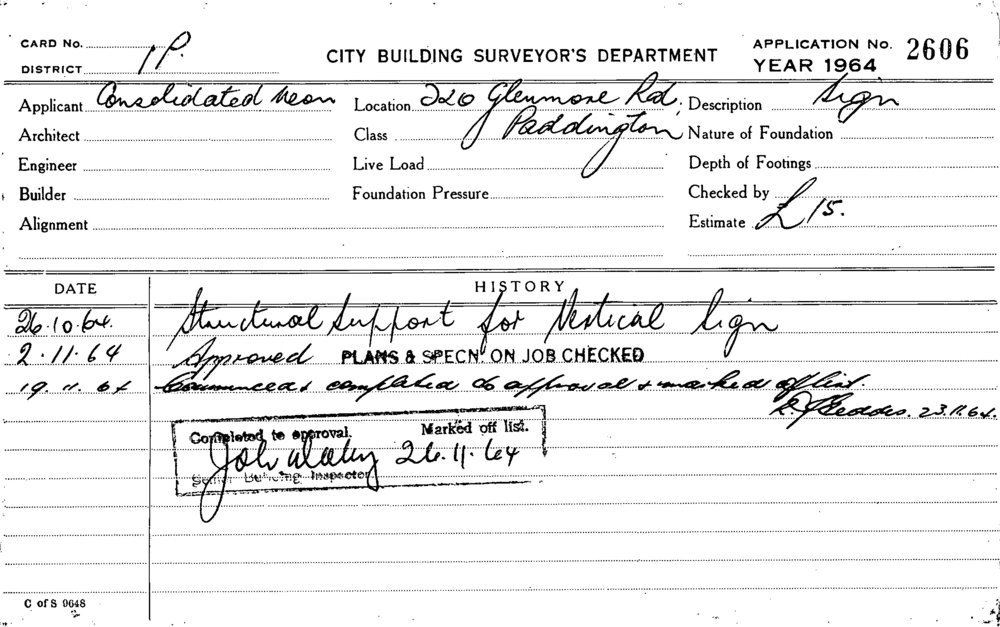 CARD No.
DISTRICT 1P.
CITY BUILDING SURVEYOR'S DEPARTMENT
APPLICATION No. 2606
YEAR 1964
Applicant Consolidated Neon
Location 220 Glenmore Rd.
Paddington
Description Sign
Architect
Class
Nature of Foundation
Engineer
Live Load
Depth of Footings
Builder
Foundation Pressure
Checked by
Alignment
Estimate £15.
DATE
HISTORY
26.10.64. Structural Support for Vertical Sign
2.11.64 Approved PLANS & SPECN. ON JOB CHECKED
19.11.64 Commenced & completed to approval & marked off list.
Geddes. 23.11.64.
Completed to approval. Marked off list.
26.11.64
Senior Building Inspector
C of S 9648